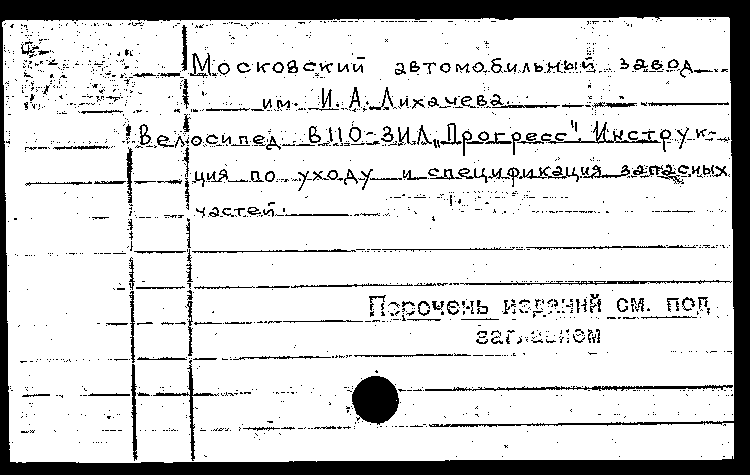 Московский автомобильный завод
им. И. А. Лихачева.
Велосипед В110-ЗИЛ „Прогресс". Инструк-
ция по уходу и спецификация запасных
частей.
Перечень изданий см. под
заглавием